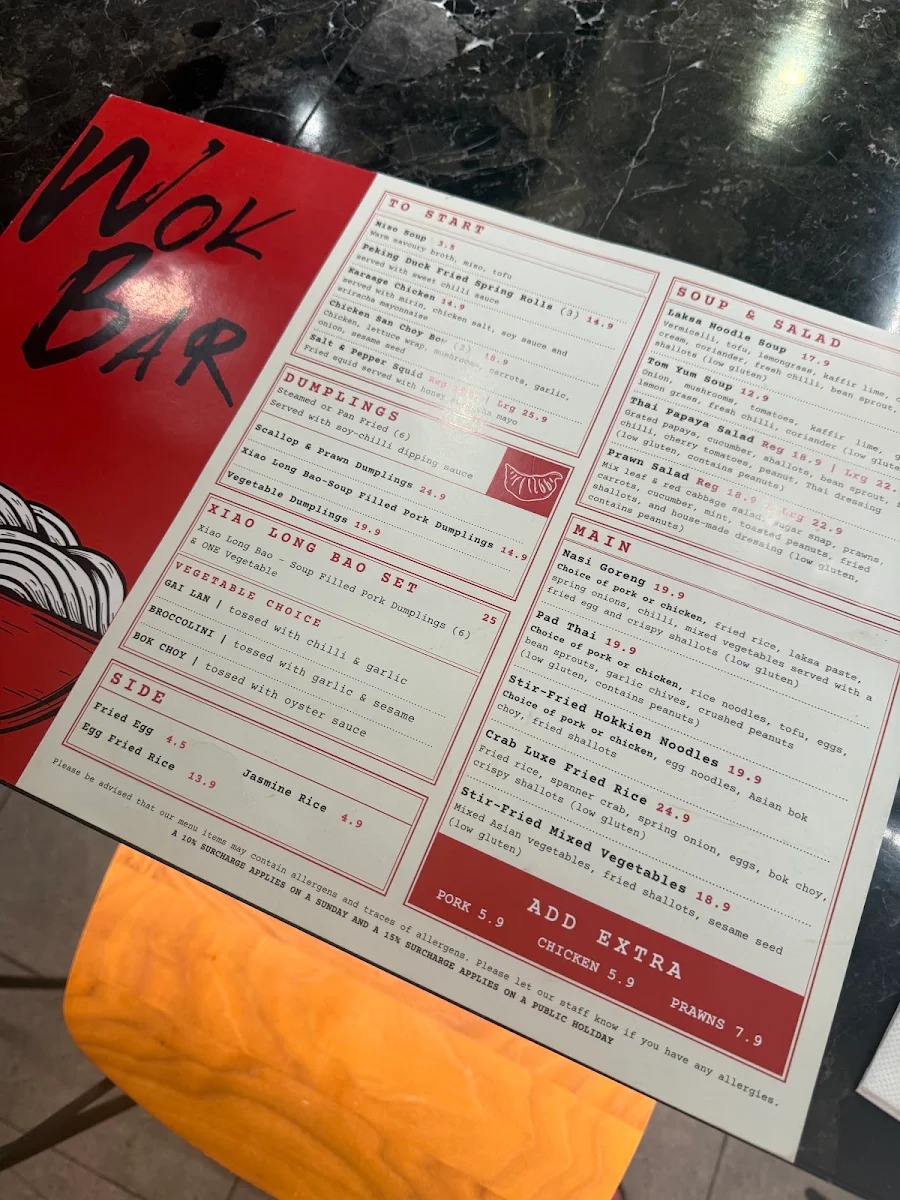 WOK
BAR
TO START
Miso Soup 3.5
Warm savoury broth, miso, tofu
Peking Duck Fried Spring Rolls (3) 14.9
served with sweet chilli sauce
Karaage Chicken 14.9
served with mirin, chicken salt, soy sauce and
sriracha mayonnaise
Chicken San Choy Bow (2) 18.9
Chicken, lettuce wrap, mushrooms, carrots, garlic,
onion, sesame seed
Salt & Pepper Squid Reg | Lrg 25.9
Fried squid served with honey mayo
DUMPLINGS
Steamed or Pan Fried (6)
Served with soy-chilli dipping sauce
Scallop & Prawn Dumplings 24.9
Xiao Long Bao-Soup Filled Pork Dumplings 14.9
Vegetable Dumplings 19.9
XIAO LONG BAO SET
Xiao Long Bao - Soup Filled Pork Dumplings (6) 25
& ONE Vegetable
VEGETABLE CHOICE
GAI LAN | tossed with chilli & garlic
BROCCOLINI | tossed with garlic & sesame
BOK CHOY | tossed with oyster sauce
SIDE
Fried Egg 4.5
Jasmine Rice 4.9
Egg Fried Rice 13.9
SOUP & SALAD
Laksa Noodle Soup 17.9
Vermicilli, tofu, lemongrass, kaffir lime,
cream, coriander, fresh chilli, bean sprout,
shallots (low gluten)
Tom Yum Soup 12.9
Onion, mushrooms, tomatoes, kaffir lime,
lemon grass, fresh chilli, coriander (low
Thai Papaya Salad Reg 18.9 | Lrg 22.
Grated papaya, cucumber, shallots, bean sprout,
chilli, cherry tomatoes, peanut, Thai dressing
(low gluten, contains peanuts)
Prawn Salad Reg 18.9 Lrg 22.9
Mix leaf & red cabbage salad, sugar snap, prawns,
carrots, cucumber, mint, toasted peanuts, fried
shallots, and house-made dressing (low gluten,
contains peanuts)
MAIN
Nasi Goreng 19.9
Choice of pork or chicken, fried rice, laksa paste,
spring onions, chilli, mixed vegetables served with a
fried egg and crispy shallots (low gluten)
Pad Thai 19.9
Choice of pork or chicken, rice noodles, tofu, eggs,
bean sprouts, garlic chives, crushed peanuts
(low gluten, contains peanuts)
Stir-Fried Hokkien Noodles 19.9
Choice of pork or chicken, egg noodles, Asian bok
choy, fried shallots
Crab Luxe Fried Rice 24.9
Fried rice, spanner crab, spring onion, eggs, bok choy,
crispy shallots (low gluten)
Stir-Fried Mixed Vegetables 18.9
Mixed Asian vegetables, fried shallots, sesame seed
(low gluten)
ADD EXTRA
PORK 5.9 CHICKEN 5.9 PRAWNS 7.9
Please be advised that our menu items may contain allergens and traces of allergens. Please let our staff know if you have any allergies.
A 10% SURCHARGE APPLIES ON A SUNDAY AND A 15% SURCHARGE APPLIES ON A PUBLIC HOLIDAY